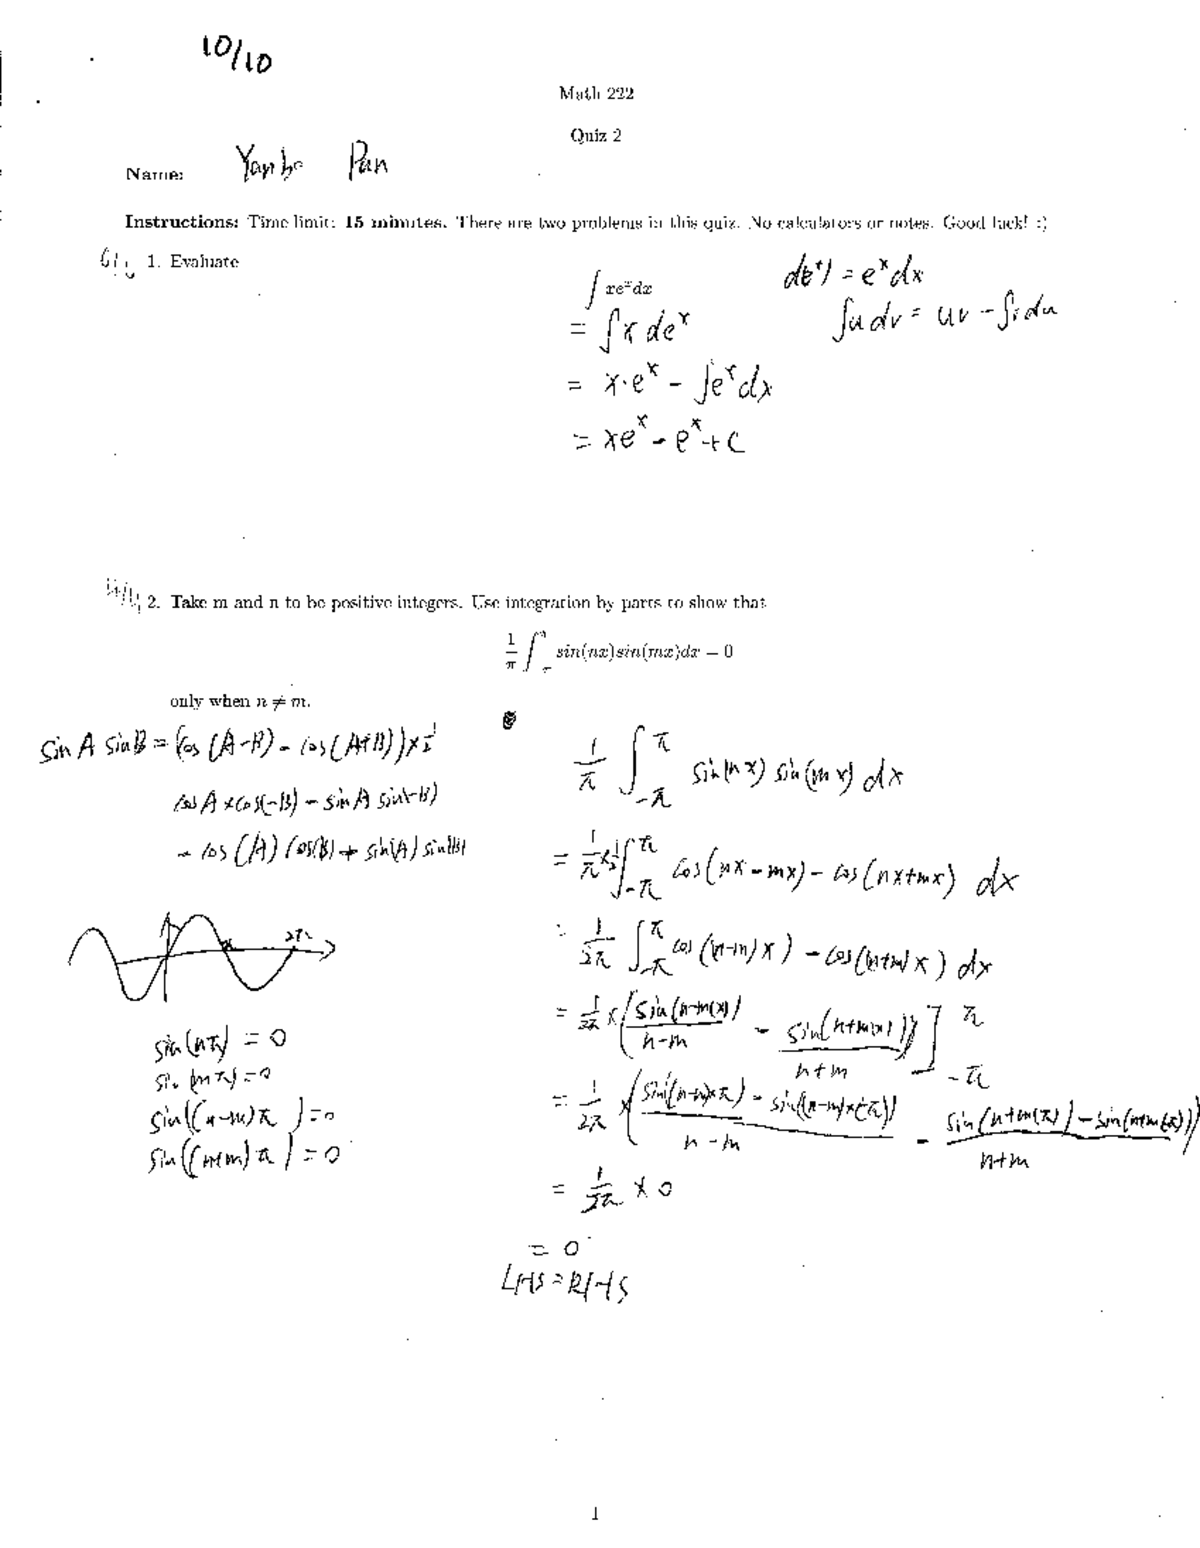 10/10
Math 222
Quiz 2
Name: Yanbo Pan
Instructions: Time limit: 15 minutes. There are two problems in this quiz. No calculators or notes. Good luck! :)
1. Evaluate
∫ xe^x dx
d(e^x) = e^x dx
= ∫ x de^x
∫u dv = uv - ∫v du
= x·e^x - ∫e^x dx
= xe^x - e^x + C
2. Take m and n to be positive integers. Use integration by parts to show that
1/π ∫_{-π}^{π} sin(nx)sin(mx)dx = 0
only when n ≠ m.
sin A sin B = (cos(A-B) - cos(A+B)) × 1/2
cos A × cos(-B) - sin A sin(-B)
- cos(A) cos(B) + sin(A) sin(B)
2π
sin(nπ) = 0
sin(mπ) = 0
sin((n-m)π) = 0
sin((n+m)π) = 0
1/π ∫_{-π}^{π} sin(nx) sin(mx) dx
= 1/π × 1/2 ∫_{-π}^{π} cos(nx-mx) - cos(nx+mx) dx
= 1/2π ∫_{-π}^{π} cos((n-m)x) - cos((n+m)x) dx
= 1/2π × (sin(n-m(x))/n-m - sin(n+m(x))/n+m)]_{-π}^{π}
= 1/2π × (sin((n-m)×π) - sin((n-m)×(-π))/n-m - sin(n+m(π)) - sin(n+m(-π))/n+m)
= 1/2π × 0
= 0
LHS = RHS
1